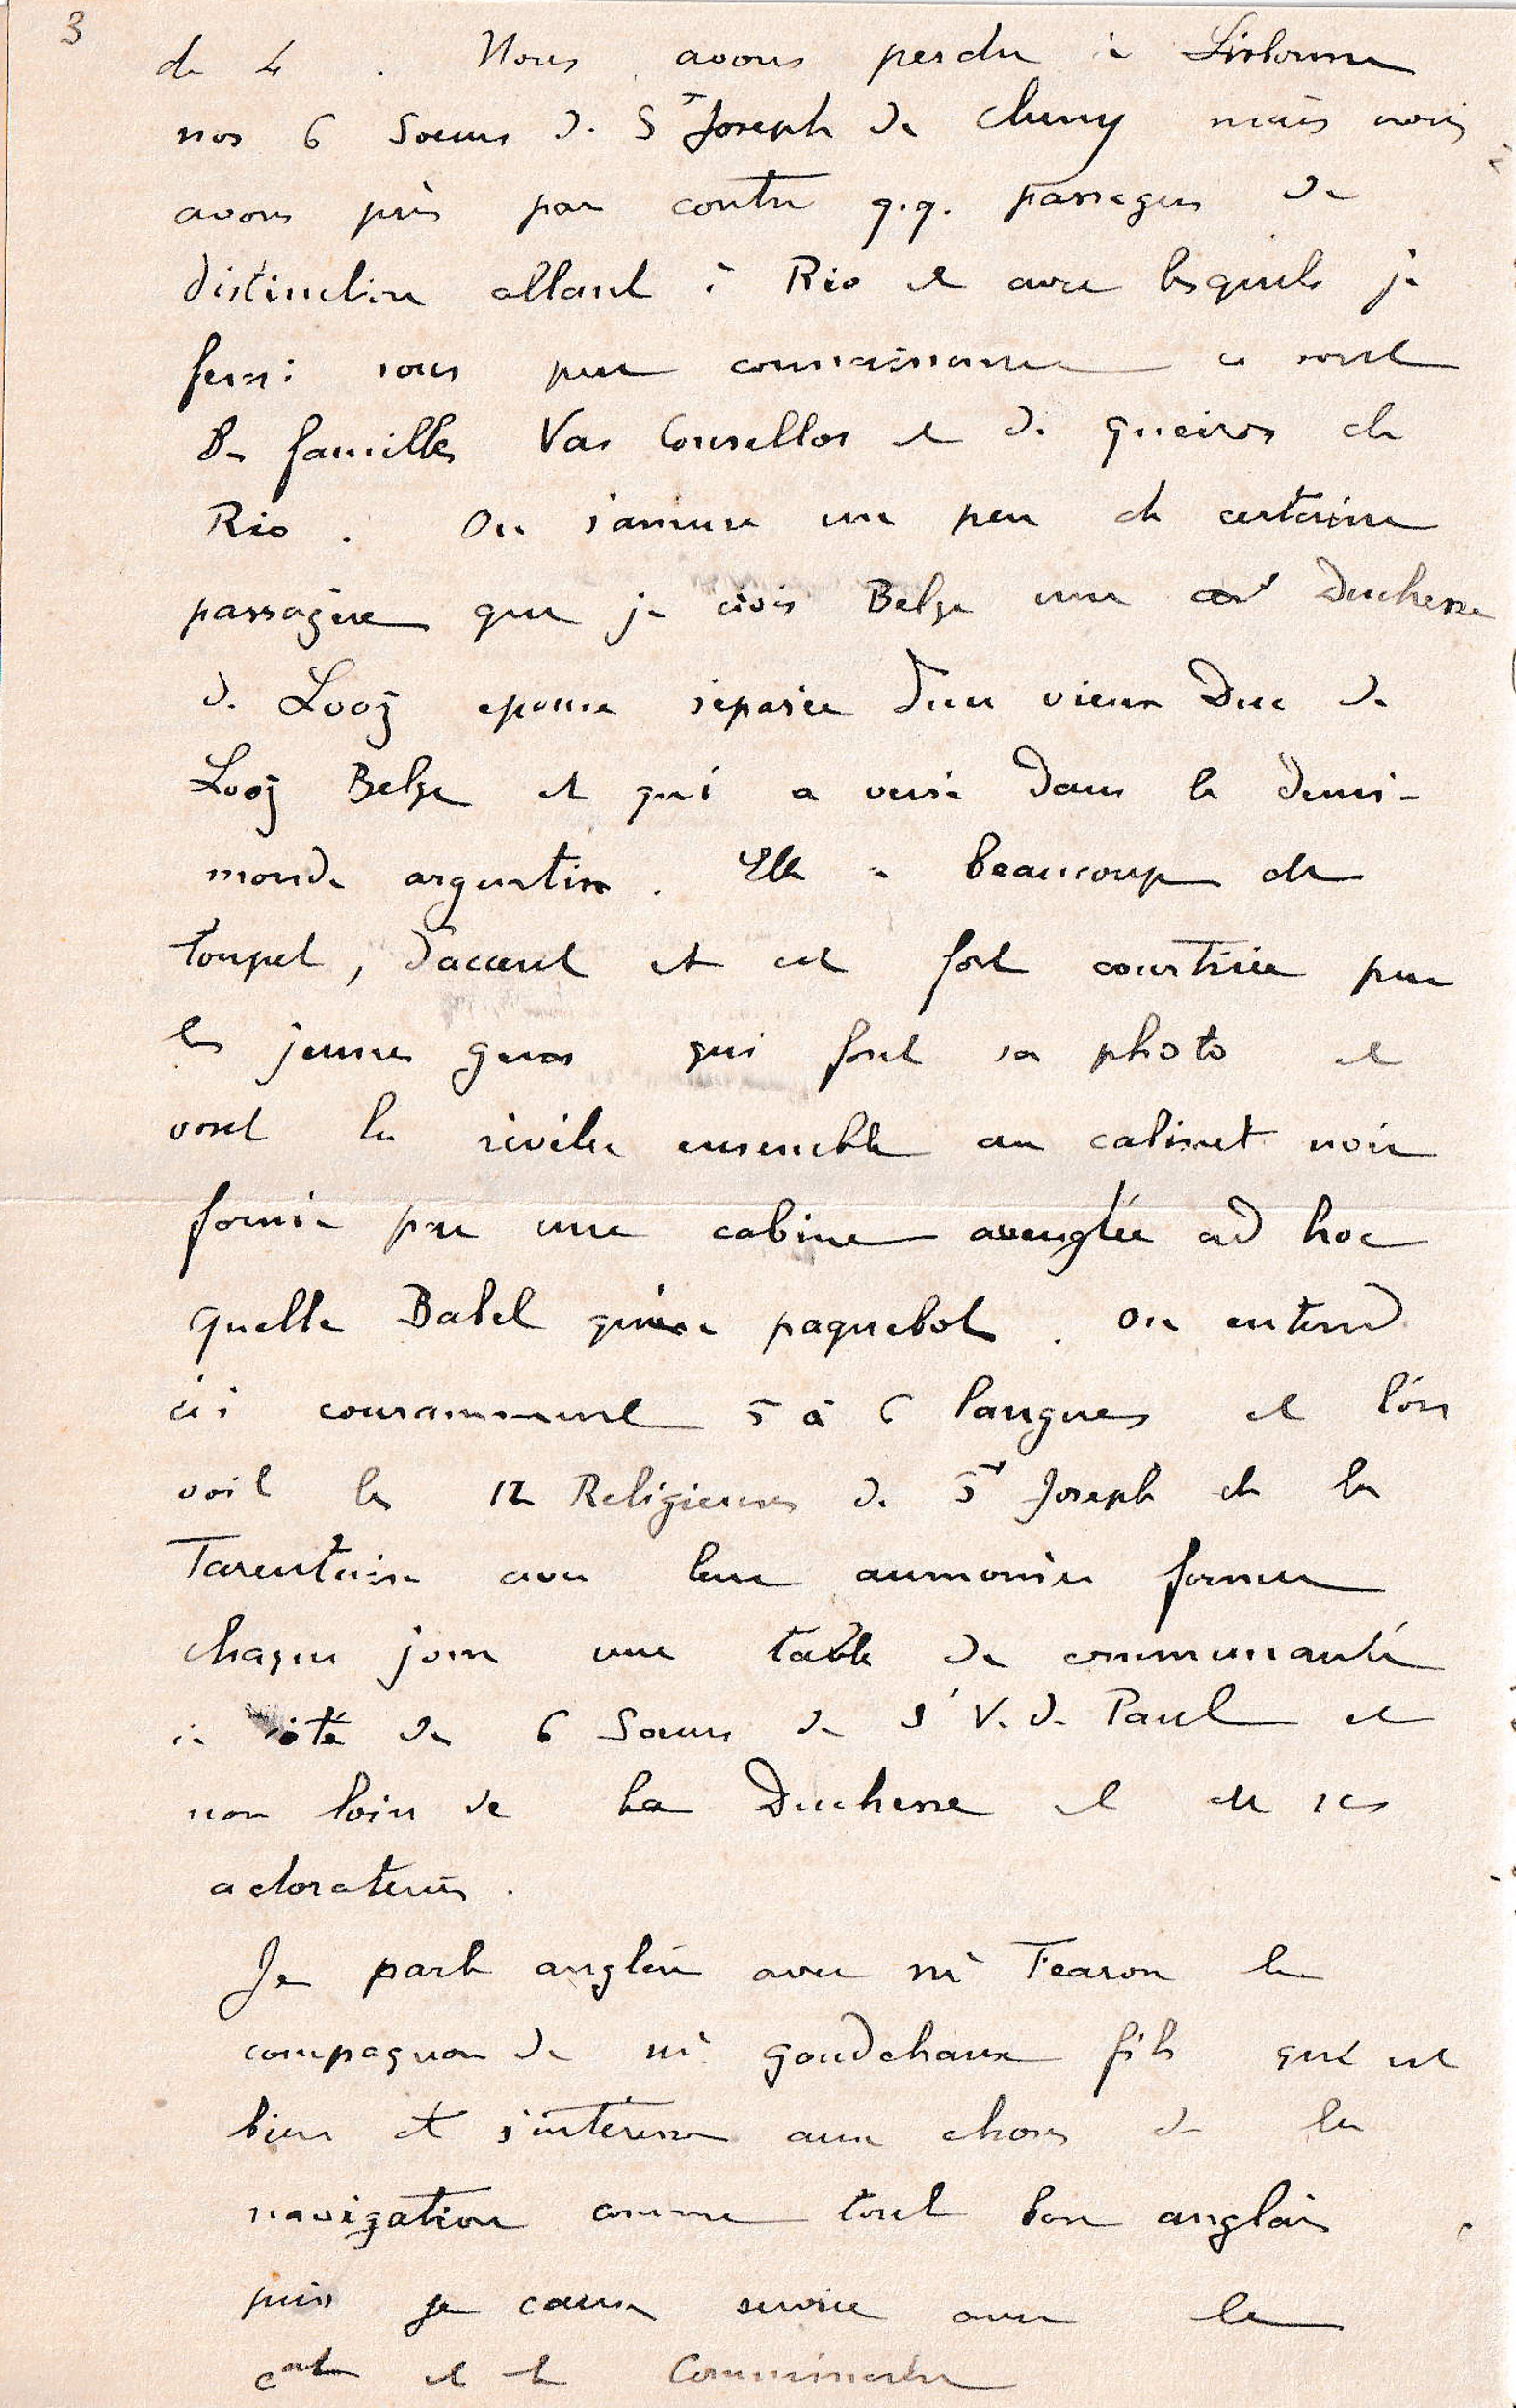 3
de 4. Nous avons perdu à Lisbonne
nos 6 Soeurs de St Joseph de Cluny mais nous
avons pris par contre q.q. passagers de
distinction allant à Rio et avec lesquels je
ferai sous peu connaissance ce sont
les familles Vas Consellos et de Queiros de
Rio. On s'amuse un peu de certaine
passagère que je crois Belge une Duchesse
de Looz epouse séparée d'un vieux Duc de
Looz Belge et qui a versé dans le demi-
monde argentin. Elle a beaucoup de
toupet, d'accent et est fort courtisée par
les jeunes gens qui font sa photo et
vont la révéler ensemble au cabinet noir
formé par une cabine aveuglée ad hoc
quelle Babel qu'un paquebot. On entend
ici couramment 5 à 6 langues et l'on
voit les 12 Religieuses de St Joseph de la
Tarentaise avec leur aumonier former
chaque jour une table de communauté
à côté de 6 Soeurs de St V. de Paul et
non loin de la Duchesse et de ses
adorateurs.
Je parle anglais avec Mr Fearon le
compagnon de Mr Goudchaux fils qui est
bien et s'intéresse aux choses de la
navigation comme tout bon anglais
puis je cause service avec le
cant et le Commissaire